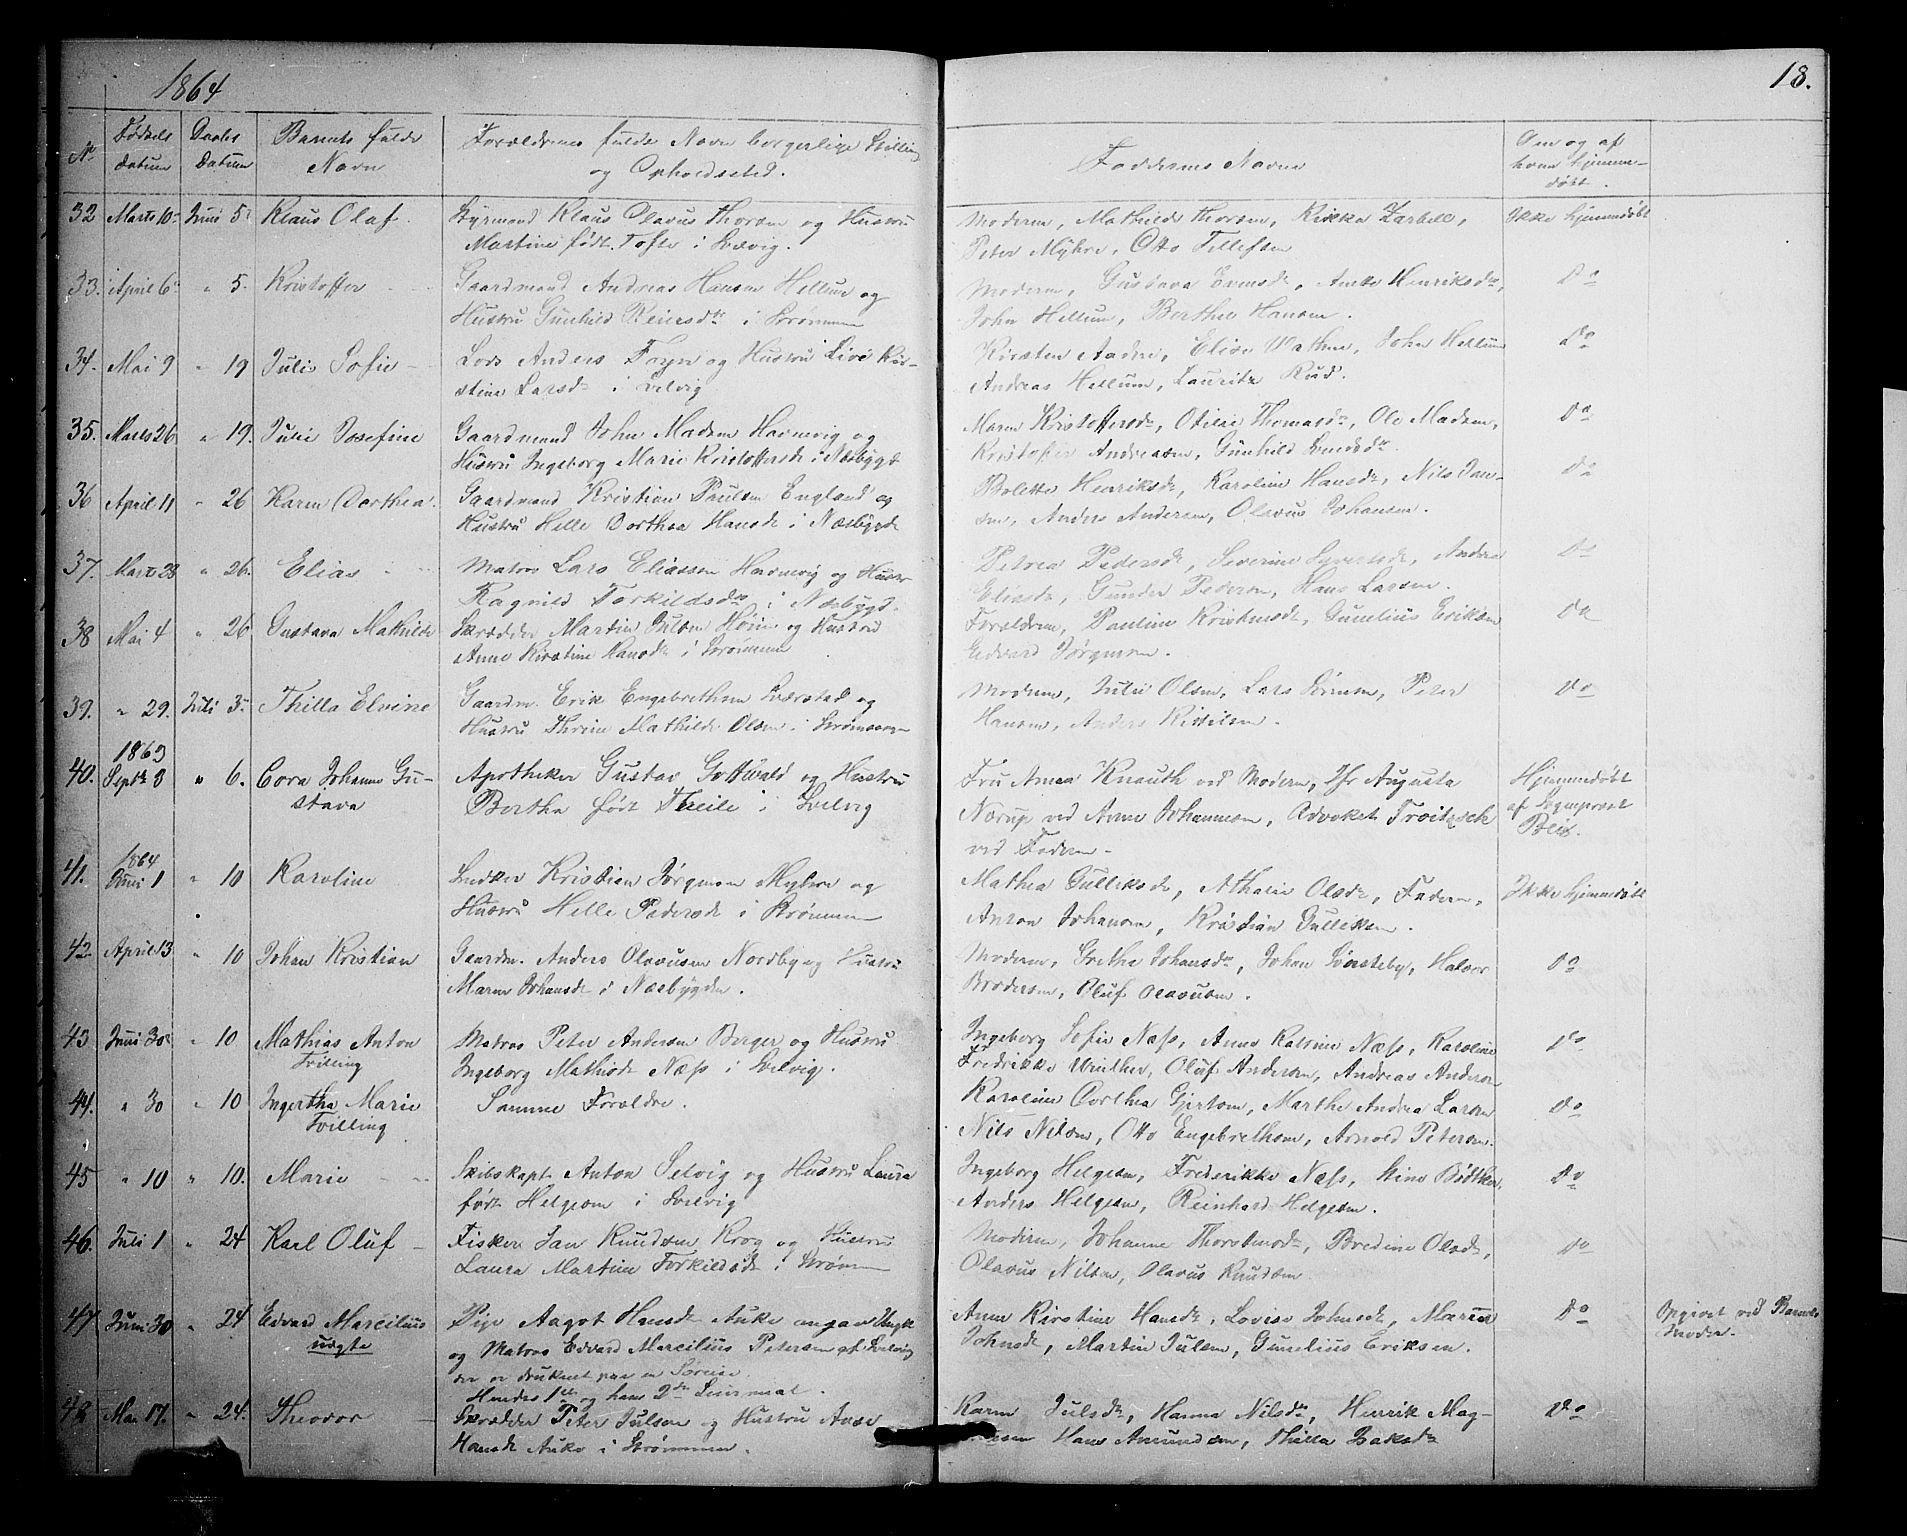 1864
18.
No Fødsels Datum Daabs Datum Barnets fulde Navn Forældrenes fulde Navn borgerlige Stilling og Opholdssted. Faddernes Navne Om og af hvem hjemmedøbt.
32 Marts 10 Juni 5 Klaus Olaf. Styrmand Klaus Olavus Thorsen og Hustru Moderen, Mathilde Thorsen, Rikka Zarbell, Ikke hjemmedøbt
Martine født Tofte i Svelvig. Peter Myhre, Otto Tellefsen
33. April 6 " 5. Kristoffer Gaardmand Andreas Hansen Hellum og Moderen, Gustava Evensdr, Anke Henriksdr, Do
Hustru Gunhild Reiersdtr i Strømmen John Hellum, Berthe Hansen.
34. Mai 9 " 19 Julie Sofie Lods Anders Foyn og Hustru Live Kir- Kirsten Andrea, Elise Wathne, John Hellum Do
stine Larsdr i Svelvig Andreas Hellum, Lauritz Rud.
35. Marts 26 " 19. Julie Josefine Gaardmand John Madsen Havnevig og Maren Kristoffersdr, Otilie Thomasdr, Ole Madsen, Do
Hustru Ingeborg Marie Kristoffersdr i Næsbygd Kristofer Andreasen, Gunhild Svendsdr
36 April 11 " 26 Karen Dorthea. Gaardmand Kristian Paulsen England og Bolette Henriksdr, Karoline Hansdr, Nils Jan- Do
Hustru Helle Dorthea Hansdr i Næsbygd sen, Anders Andersen, Olavus Johansen.
37. Marts 28 " 26. Elias Matros Lars Eliassen Havnevig og Hustru Petrea Pedersdr, Severine Syversdr, Andrea Do
Ragnild Torkildsdr i Næsbygd. Eliasdr, Gunder Pedersen, Hans Larsen.
38 Mai 4 " 26 Gustava Mathilde Skrædder Martin Julsen Høin og Hustru Forældrene, Pauline Kristensdr, Gunelius Eriksen Do
Anne Kirstine Hansdr i Strømmen Edvard Jørgensen.
39. " 29. Juli 3 Thilla Elvine Gaardm. Erik Engebrethsen Sværstad og Moderen, Julie Olsen, Lars Sørensen, Peter Do
Hustru Thrine Mathilde Olsen i Strømmen Hansen, Anders Kittilsen.
1863
40. Septr 3 " 6. Cora Johanne Gu- Apotheker Gustav Gottwald og Hustru Fru Anna Knauth ved Moderen, Jfr Augusta Hjemmedøbt
stava Bertha født Theile i Svelvig Nærup ved Anne Johannesen, Advokat Troitzsch af Sognepræst
ved Faderen Blix.
1864
41. Juni 1 " 10 Karoline Snedker Kristian Jørgensen Myhre og Mathea Gulliksdr, Athalie Olsdr, Faderen, Ikke hjemmedøbt
Hustru Helle Pedersdr i Strømmen Anton Johansen, Kristian Gulliksen.
42. April 13 " 10 Johan Kristian Gaardm. Anders Olavusen Nordby og Hustru Moderen, Grethe Johansdr, Johan Sørsteby, Halvor Do
Maren Johansdr i Næsbygden. Brodersen, Oluf Olavusen.
43 Juni 30 " 10 Mathias Anton Matros Peter Andersen Berger og Hustru Ingeborg Sofie Næss, Anne Katrine Næss, Karoline Do
Tvilling Ingeborg Mathisdr Næss i Svelvig. Fredrikke Winther, Oluf Andersen, Andreas Andersen
44. " 30 " 10 Ingertha Marie Samme Forældre. Karoline Dorthea Gjertsen, Marthe Andrea Larsen Do
Tvilling Nils Nilsen, Otto Engebrethsen, Arnold Petersen.
45 " 10 " 10. Marie Skibskapt. Anton Selvig og Hustru Laura Ingeborg Helgesen, Frederikke Næss, Stine Bødtker, Do
født Helgesen i Svelvig Anders Helgesen, Reinhard Helgesen.
46. Juli 1 " 24 Karl Oluf Fisker Jan Knudsen Krog og Hustru Moderen, Johanne Thorstensdr, Bredine Olsdr, Do
Laura Martine Torkildsdr i Strømmen Olavus Nilsen, Olavus Knudsen
47 Juni 30 " 24. Edvard Marcilius Pige Aagot Hansdr Auke angav Ungk Anne Kirstine Hansdr, Lovise Johnsdr, Maren Do Opgivet ved Barnets
uægte og Matros Edvard Marcilius Petersen af Svelvig Johnsdr, Martin Julsen, Gunelius Eriksen. Moder.
der er druknet paa en Søreise.
Hendes 1ste og hans 2det Leiermaal.
48 Mai 17. " 24. Theodor Skrædder Peter Julsen og Hustru Anne Karen Julsdr, Hanna Nilsdr, Henrik Mag- Do
Hansdr Auke i Strømmen. nusen Hans Amundsen, Thilla Isaksdr